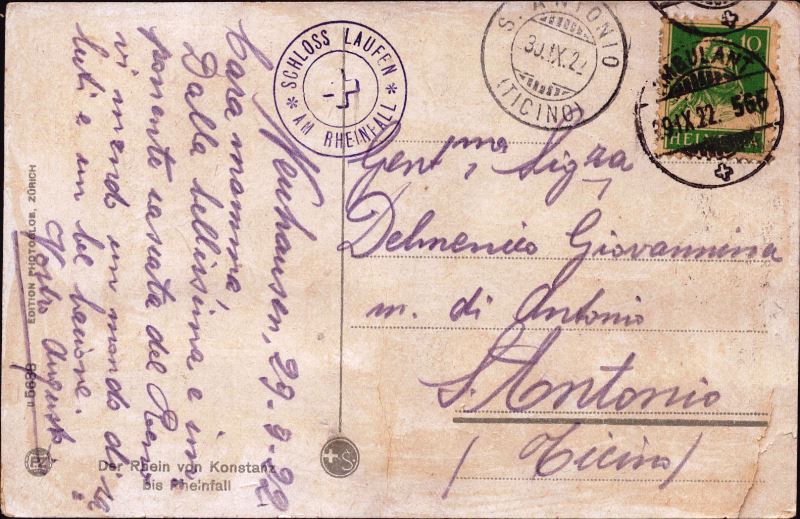 Neuhausen, 29-9-22.
Cara mamma
Dalla bellissima e im-
ponente cascata del Reno
vi mando un mondo di sa
luti e un bel bacione.
Vostro Augusto
Gent.ma Sig.ra
Delmenico Giovannina
m. di Antonio
S. Antonio
(Ticino)
SCHLOSS LAUFEN
* AM RHEINFALL *
S. ANTONIO
30.IX.22
(TICINO)
10
HELVETIA
AMBULANT
29.IX.22
566
EDITION PHOTOGLOB, ZÜRICH
Der Rhein von Konstanz
bis Rheinfall